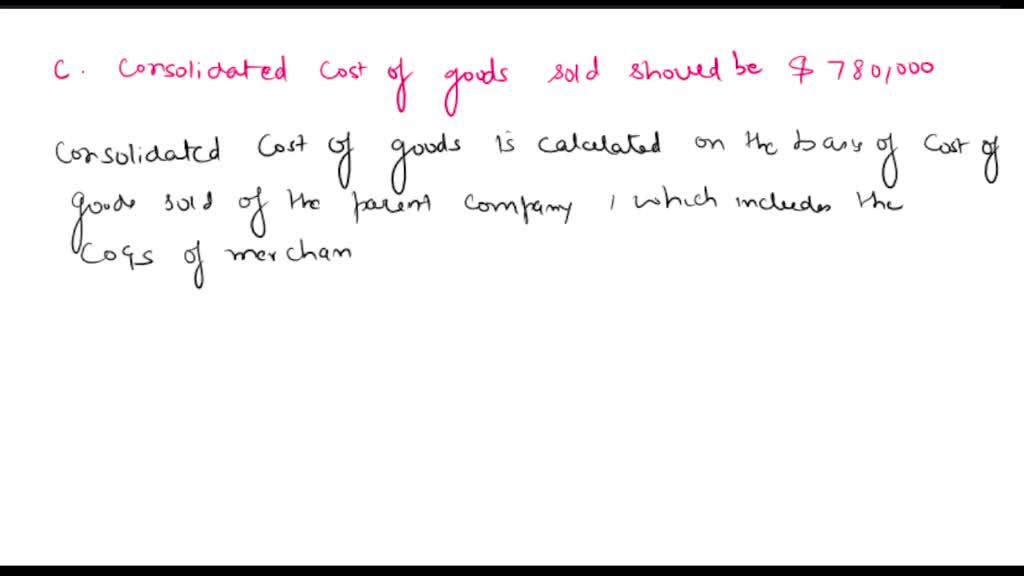 C. Consolidated cost of goods sold should be $ 780,000
Consolidated cost of goods is calculated on the basis of cost of
goods sold of the parent company, which includes the
COGS of merchan